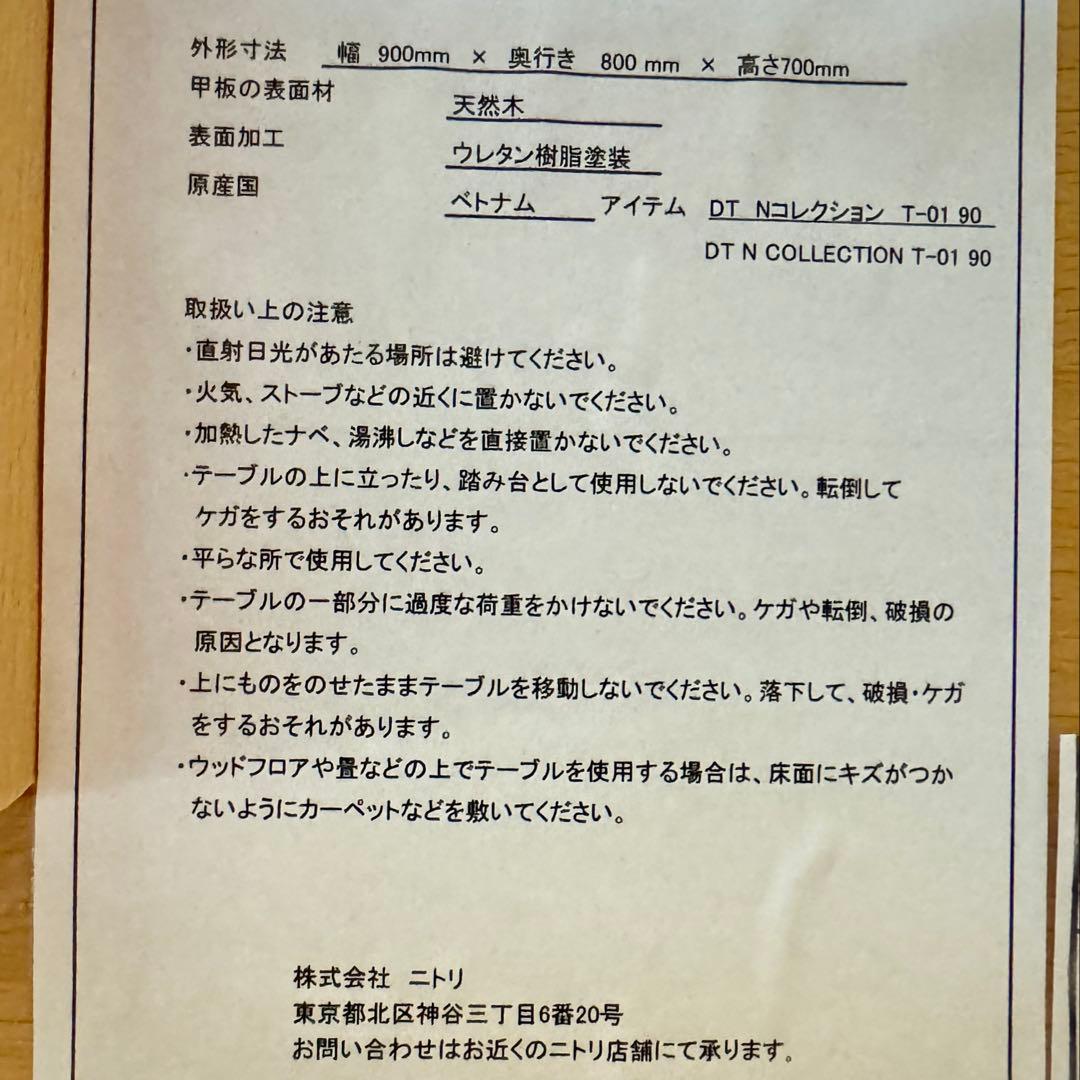 外形寸法 幅 900mm × 奥行き 800 mm × 高さ700mm
甲板の表面材 天然木
表面加工 ウレタン樹脂塗装
原産国 ベトナム アイテム DT Nコレクション T-01 90
DT N COLLECTION T-01 90
取扱い上の注意
・直射日光があたる場所は避けてください。
・火気、ストーブなどの近くに置かないでください。
・加熱したナベ、湯沸しなどを直接置かないでください。
・テーブルの上に立ったり、踏み台として使用しないでください。転倒して
ケガをするおそれがあります。
・平らな所で使用してください。
・テーブルの一部分に過度な荷重をかけないでください。ケガや転倒、破損の
原因となります。
・上にものをのせたままテーブルを移動しないでください。落下して、破損・ケガ
をするおそれがあります。
・ウッドフロアや畳などの上でテーブルを使用する場合は、床面にキズがつか
ないようにカーペットなどを敷いてください。
株式会社 ニトリ
東京都北区神谷三丁目6番20号
お問い合わせはお近くのニトリ店舗にて承ります。